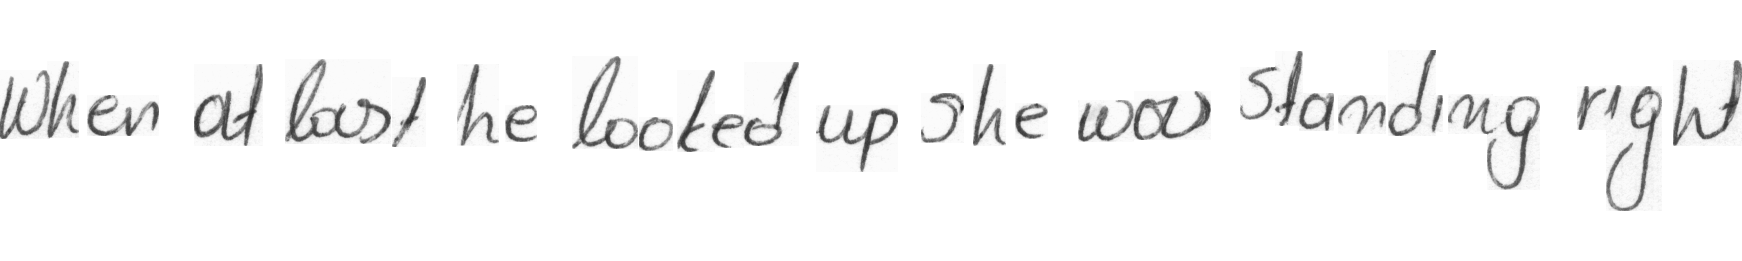 When at last he looked up she was standing right